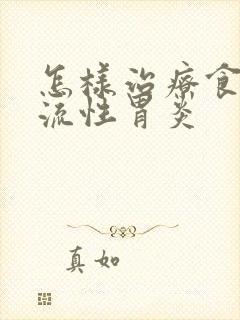 怎樣治療食
流性胃炎
真如